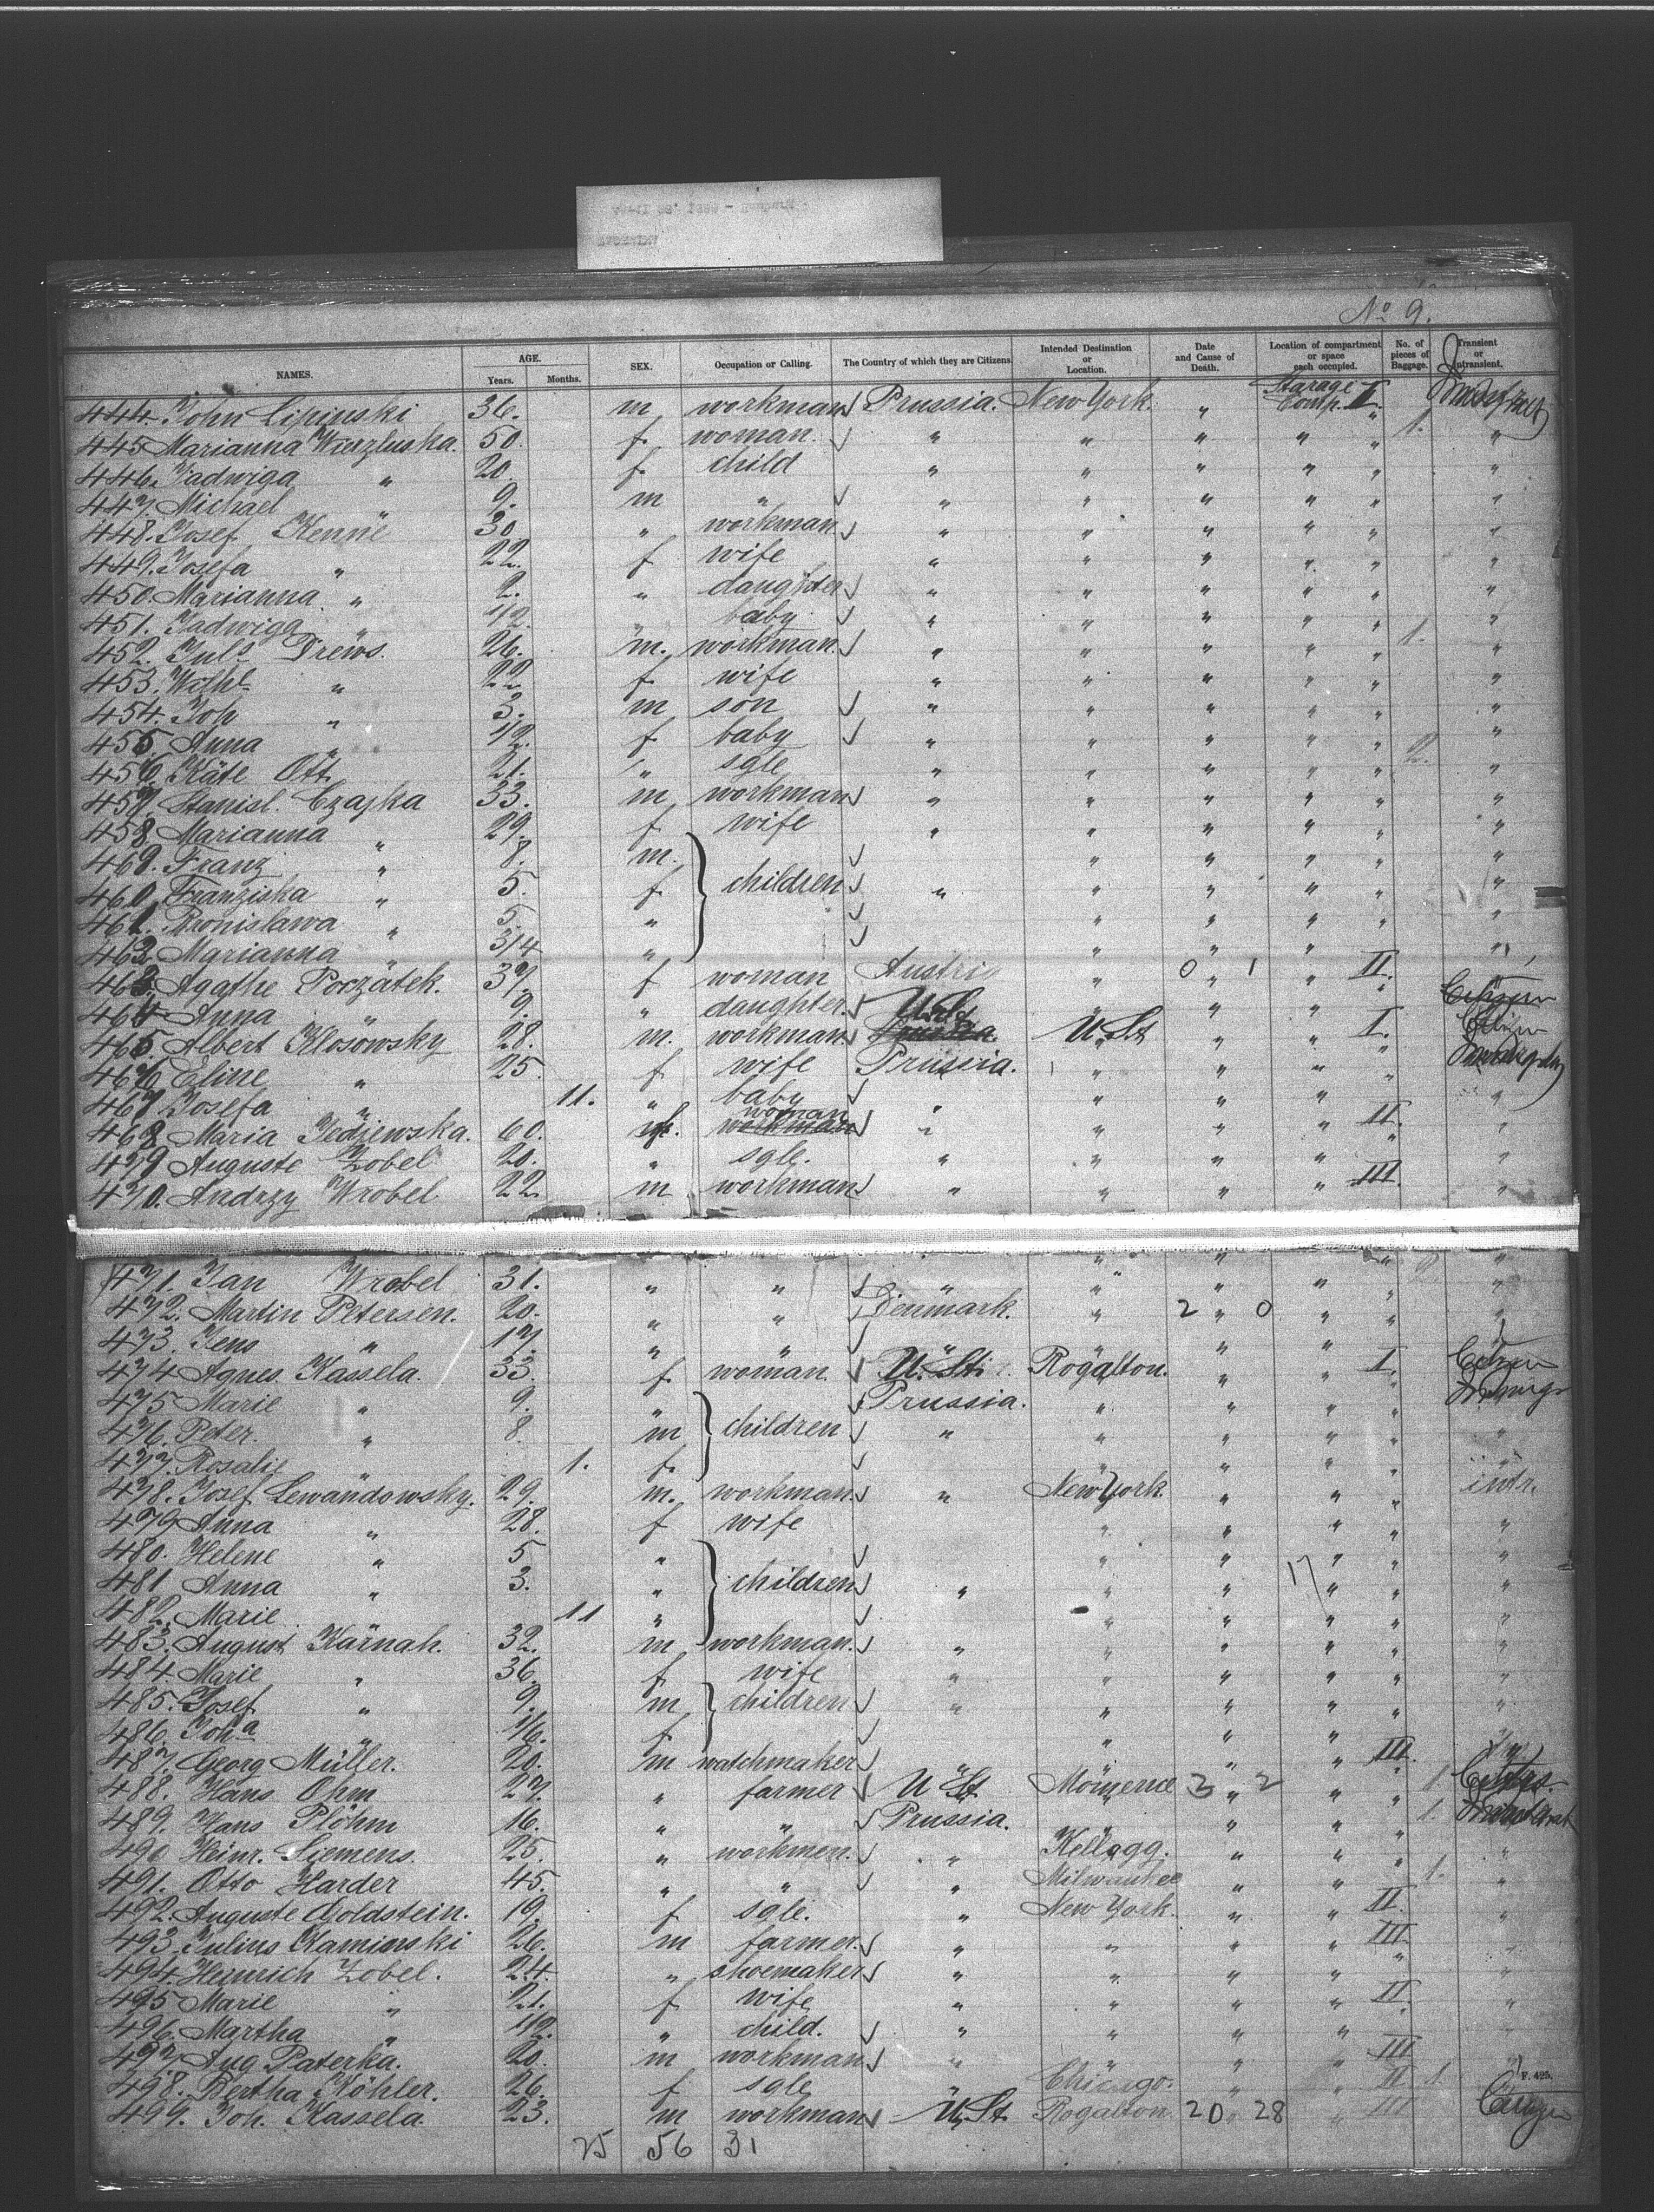 No 9.
NAMES. AGE. Years. Months. SEX. Occupation or Calling. The Country of which they are Citizens. Intended Destination or Location. Date and Cause of Death. Location of compartment or space each occupied. No. of pieces of Baggage. Transient or Intransient.
444. John Lipinski 36. m workman Prussia. New York. " Starage Comp. I.
445 Marianna 50. f. woman. " " " " " 1. "
446. Jadwiga " 20. f. child " " " " " "
447. Michael " 9. m " " " " " " "
448. Josef Kenne 30. " workman " " " " " "
449. Josefa " 22. f wife " " " " " "
450. Marianna " 2. " daughter " " " " " "
451. Jadwiga " 1/2. " baby " " " " " "
452. Juls Drews. 26. m. workman. " " " " " 1. "
453. Wilhl. " 22 f. wife " " " " " "
454. Joh " 3. m son " " " " " "
455. Anna " 1/2. f baby " " " " " "
456. Käte Ott 21. " sgle " " " " " 2. "
457. Stanisl. Czajka 33. m workman " " " " " "
458. Marianna " 29. f. wife " " " " " "
469. Franz " 8. m. " " " " "
460. Franziska " 5. f children " " " " " "
461. Bronislawa " 5. " " " " " "
462. Marianna " 3/4 " " " " "
463. Agathe Poczatek. 37. f woman Austria " 0 " 1 " II.
464 Anna " 9. " daughter. " " " " Citizen
465. Albert Klosowsky 28. m. workman U.St U.St " " I. Citizen
466 Eline " 25. f wife Prussia. " " " "
467 Josefa " 11. " baby " " " " "
468 Maria Jediewska. 60. f. woman " " " " II. "
479 Auguste Zobel 20. " sgle. " " " " "
470. Andrzy Wrobel 22. m workman " " " " III. "
471. Jan Wrobel 31. " " " " " " " "
472. Martin Petersen. 20. " " Denmark. " 2 " 0 " " "
473. Jens " 17. " " " " " " "
474 Agnes Kassela. 33. f. woman. U. St. Rogalton. " " I. Citizen
475 Marie " 9. " Prussia. " " " "
476. Peter. " 8. m children " " " " " "
477. Rosalie 1. f. " " " " "
478. Josef Lewandowsky. 29. m. workman. " New York " " " intr.
479 Anna " 28. f wife " " " " "
480. Helene " 5 " " " " " "
481 Anna " 3. " children " " " 17 " " "
482. Marie 11 " " " " " "
483. August Karnah. 32. m workman. " " " " " "
484. Marie " 36. f wife " " " " " "
485. Josef " 9. m children " " " " " "
486. Joha " 1/6. f. " " " " "
487. Georg Müller. 20. m watchmaker " " " " III. "
488. Hans Ohm 27. " farmer U St. Momence 3 " 2 " " 1.
489. Hans Plöhm 16. " " Prussia. " " " " 1.
490 Heinr. Siemens. 25. " workmen. " Kellogg. " " " "
491. Otto Harder 45. " " " Milwaukee " " " 1. "
492. Auguste Goldstein. 19. f sgle. " New York. " " II. "
493. Julius Kaminski 26. m farmer. " " " " III. "
494. Heinrich Zobel. 24. " shoemaker " " " " " "
495 Marie " 21. f wife " " " " II. "
496. Martha " 1/2. " child. " " " " "
497. Aug Paterka. 20. m workman " " " " III "
498. Bertha Köhler. 26. f sgle " Chicago. " " II 1. "
499. Joh. Kassela. 23. m workman U.St. Rogalton 20 " 28 " III Citizen
25 56 31